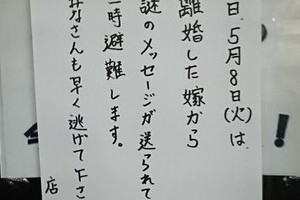 日、5月8日(火)は
離婚した嫁から
謎のメッセージが送られて
一時避難します。
みなさんも早く逃げて下さ
店